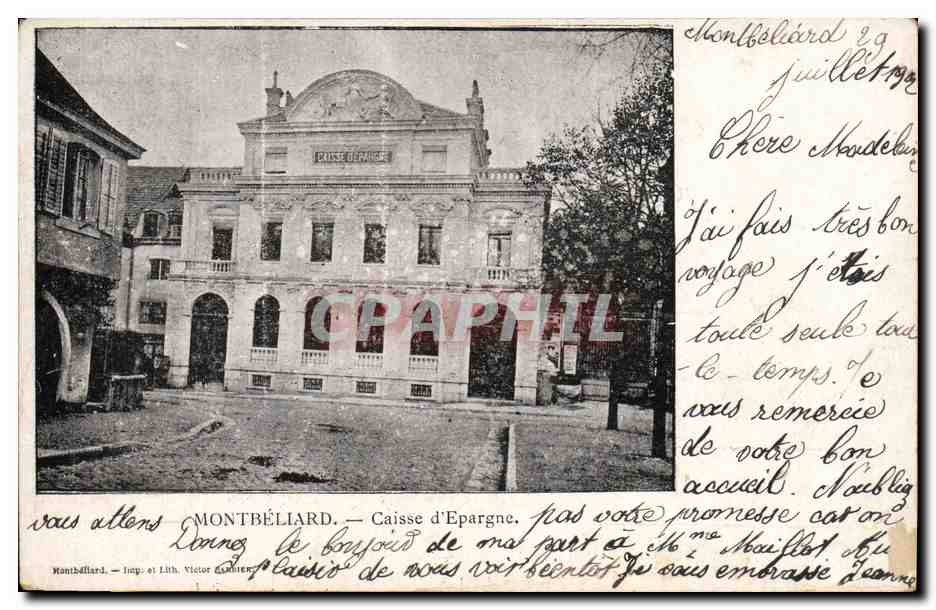 Montbéliard 29
juillet 1902
Chère Madeleine
J'ai fais très bon
voyage j'étais
toute seule tout
-le-temps. Je
vous remercie
de votre bon
accueil. N'oubliez
pas votre promesse car on
vous attens
Donnez le bonjour de ma part à Mme Maillot Au
plaisir de vous voir bientôt Je vous embrasse Jeanne
CAISSE D'EPARGNE
MONTBÉLIARD. — Caisse d'Epargne.
Montbéliard. — Imp. et Lith. Victor BARBIER.
CPARAMA